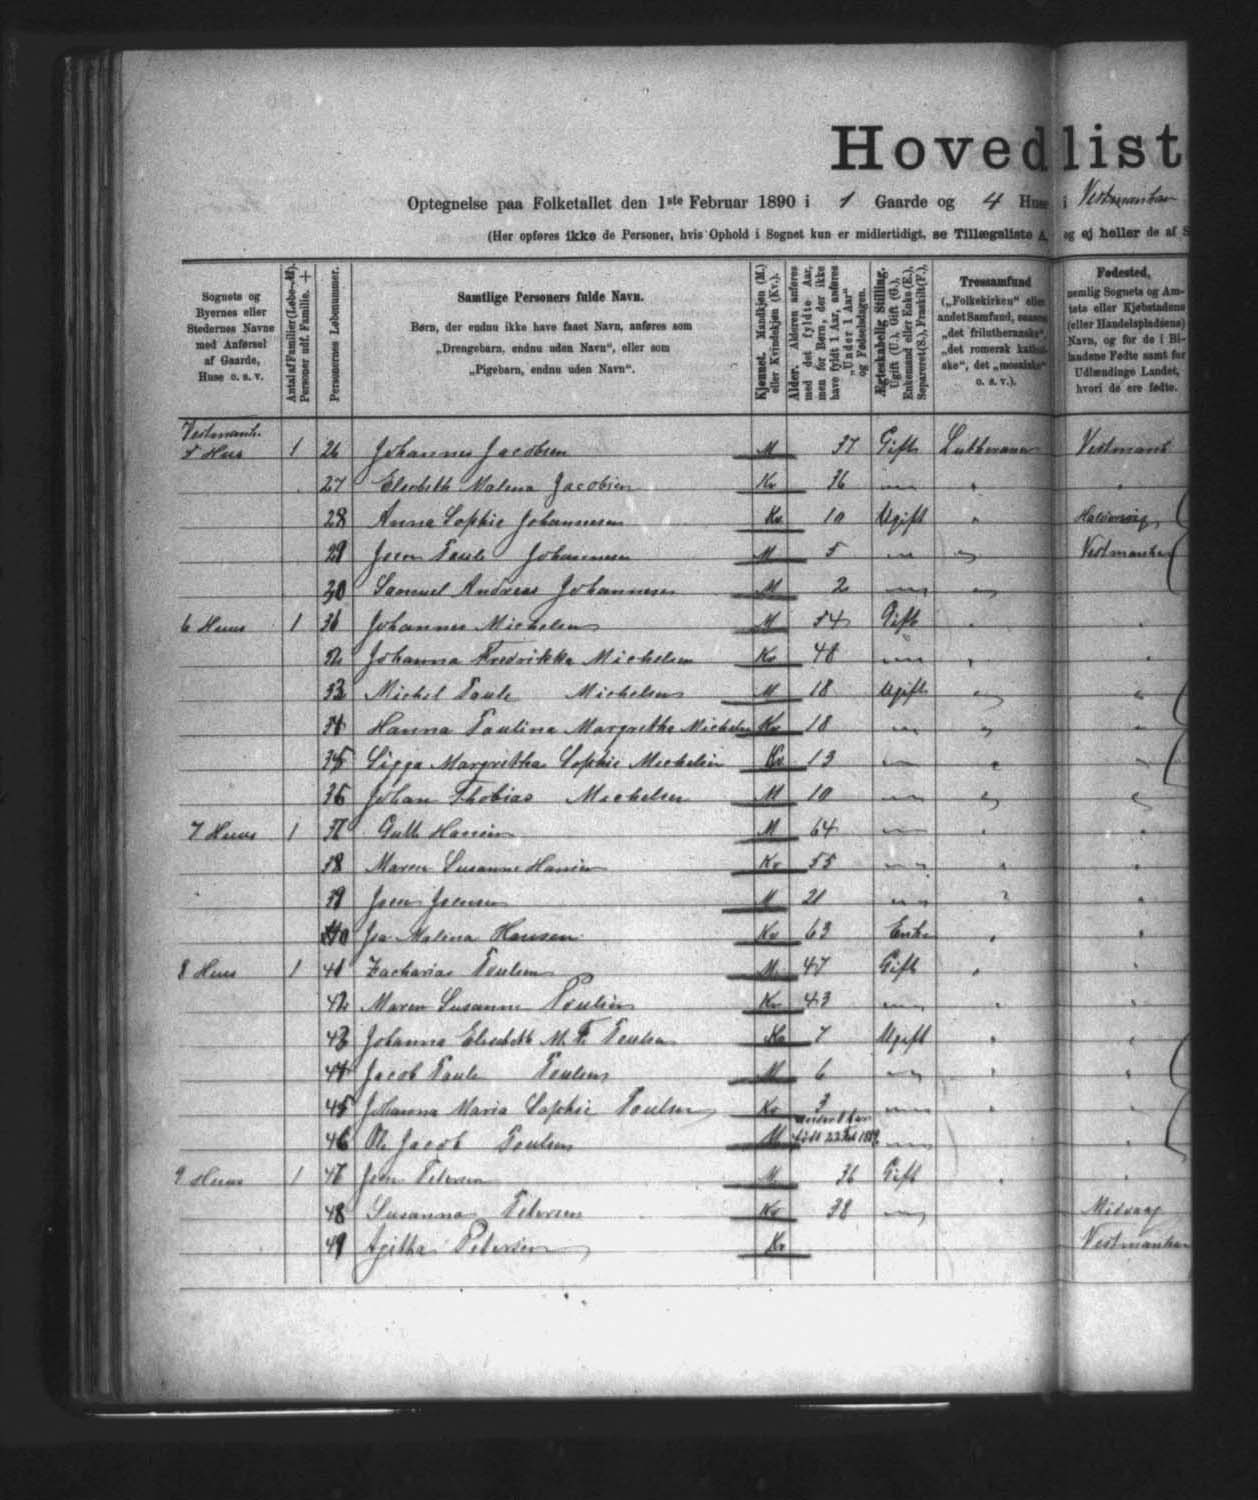 Hovedlist
Optegnelse paa Folketallet den 1ste Februar 1890 i 1 Gaarde og 4 Huse i Vestmanhavn
(Her opføres ikke de Personer, hvis Ophold i Sognet kun er midlertidigt, se Tillægsliste A, og ej heller de af S
Sognets og Byernes eller Stedernes Navne med Anførsel af Gaarde, Huse o. s. v.
Antal af Familier (Løbe-№). Personer udf. Familie. +
Personernes Løbenummer.
Samtlige Personers fulde Navn.
Børn, der endnu ikke have faaet Navn, anføres som
„Drengebarn, endnu uden Navn“, eller som
„Pigebarn, endnu uden Navn“.
Kjønnet. Mandkjøn (M.) eller Kvindekjøn (Kv.).
Alder. Alderen anføres med det fyldte Aar, men for Børn, der ikke have fyldt 1 Aar, anføres „Under 1 Aar“ og Fødselsdagen.
Ægteskabelig Stilling. Ugift (U.), Gift (G.), Enkemand eller Enke (E.), Separeret (S.), Fraskilt (F.),
Trossamfund
(„Folkekirken“ eller andet Samfund, saasom „det frilutheranske“, „det romersk katholske“, det „mosaiske“ o. s. v.).
Fødested,
nemlig Sognets og Amtets eller Kjøbstadens (eller Handelspladsens) Navn, og for de i Bilandene Fødte samt for Udlændinge Landet, hvori de ere fødte.
Vestmanh.
5 Hus 1 26 Johannes Jacobsen M 37 Gift Lutheraner Vestmanh
27 Elsebeth Malena Jacobsen Kv 36 " " "
28 Anna Sophie Johannesen Kv 10 Ugift " Haldersvig
29 Joen Poule Johannesen M 5 " " Vestmanhav
30 Samuel Andreas Johannesen M 2 " "
6 Huus 1 31 Johannes Michelsen M 54 Gift " "
32 Johanna Fredrikka Michelsen Kv 48 " " "
33 Michel Poule Michelsen M 18 Ugift " "
34 Hanna Poulina Margretha Michelsen Kv 18 " " "
35 Sigga Margretha Sophie Michelsen Kv 13 " " "
36 Johan Thobias Michelsen M 10 " " "
7 Huus 1 37 Hansen M 64 " " "
38 Maren Susanne Hansen Kv 55 " " "
39 Joen Joensen M 21 " " "
40 Malena Hansen Kv 63 Enke " "
8 Huus 1 41 Zacharias Poulsen M 47 Gift " "
42 Maren Susanne Poulsen Kv 43 " " "
43 Johanna Elsebeth M. F. Poulsen Kv 7 Ugift " "
44 Jacob Poule Poulsen M 6 " " "
45 Johanna Maria Sophie Poulsen Kv 3 " " "
46 Ole Jacob Poulsen M under 1 Aar født 22 Feb 1889 " "
9 Huus 1 47 Joen Petersen M 36 Gift " "
48 Susanna Petersen Kv 38 " Midvaag
49 Agitha Petersen Kv Vestmanhav